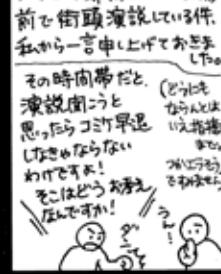 前で街頭演説している件、
私から一言申し上げておきま
した。
その時間帯だと、
演説聞こうと
思ったらコミケ早退
しなきゃならない
わけですよ!
そこはどうお考え
なんですか!
(どうにも
ならんとは
いえ指摘
まで。
つかエラそう
ですみません
うん…